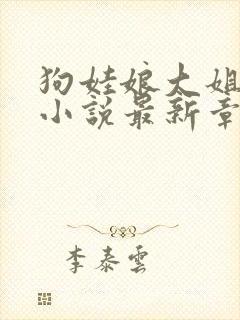 狗娃娘大姐
小說最新章
李泰雲